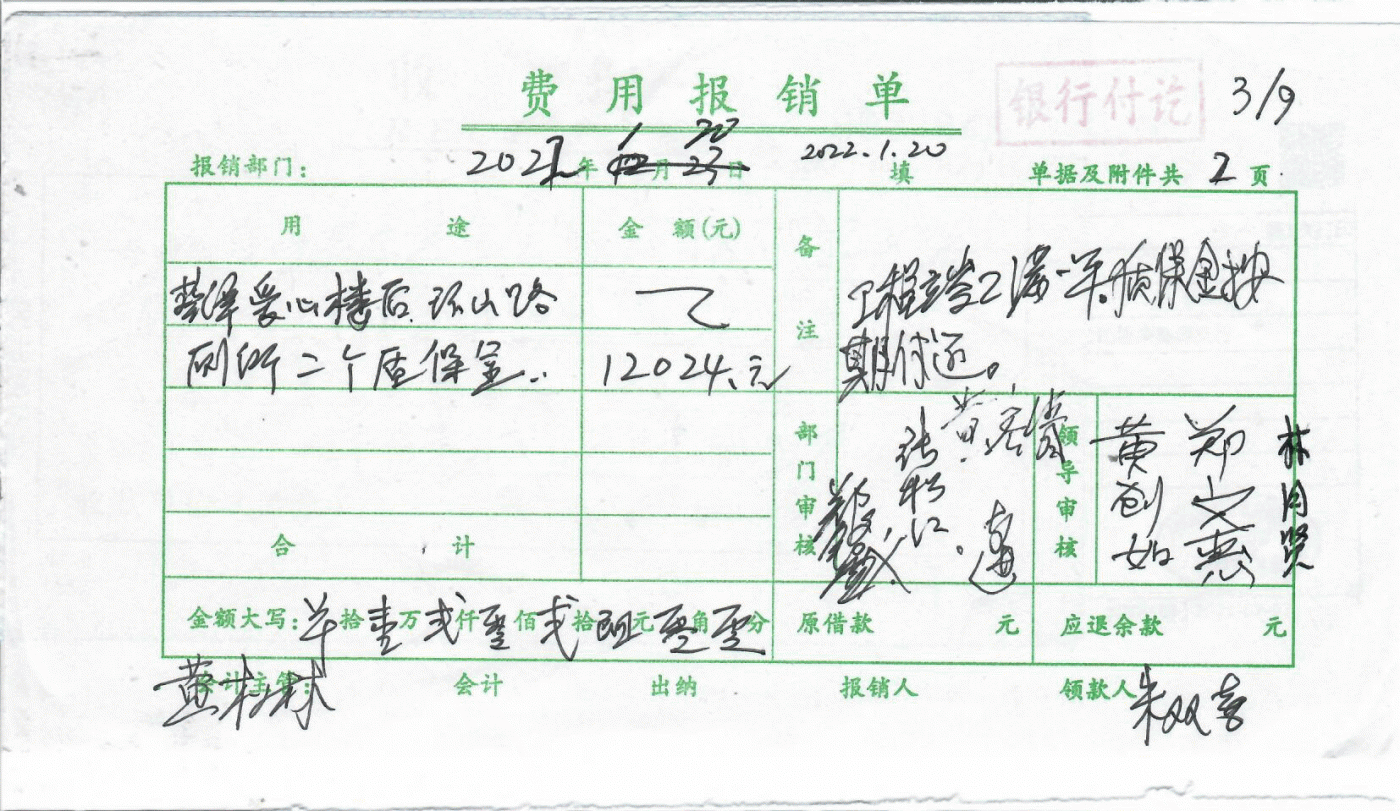 费用报销单
银行付讫
3/9
2022.1.20
报销部门： 202 年 月 日 填 单据及附件共 2 页
用途 金额(元) 备注
爱心楼后环山路
厕所二个质保金 12024元
工程竣工满一年，质保金按
期付还。
部门审核 领导审核
黄创如 郑文惠 林月贤
合计
金额大写： 拾壹万弍仟零佰弍拾肆元零角零分 原借款 元 应退余款 元
会计主管： 会计 出纳 报销人 领款人
朱双喜